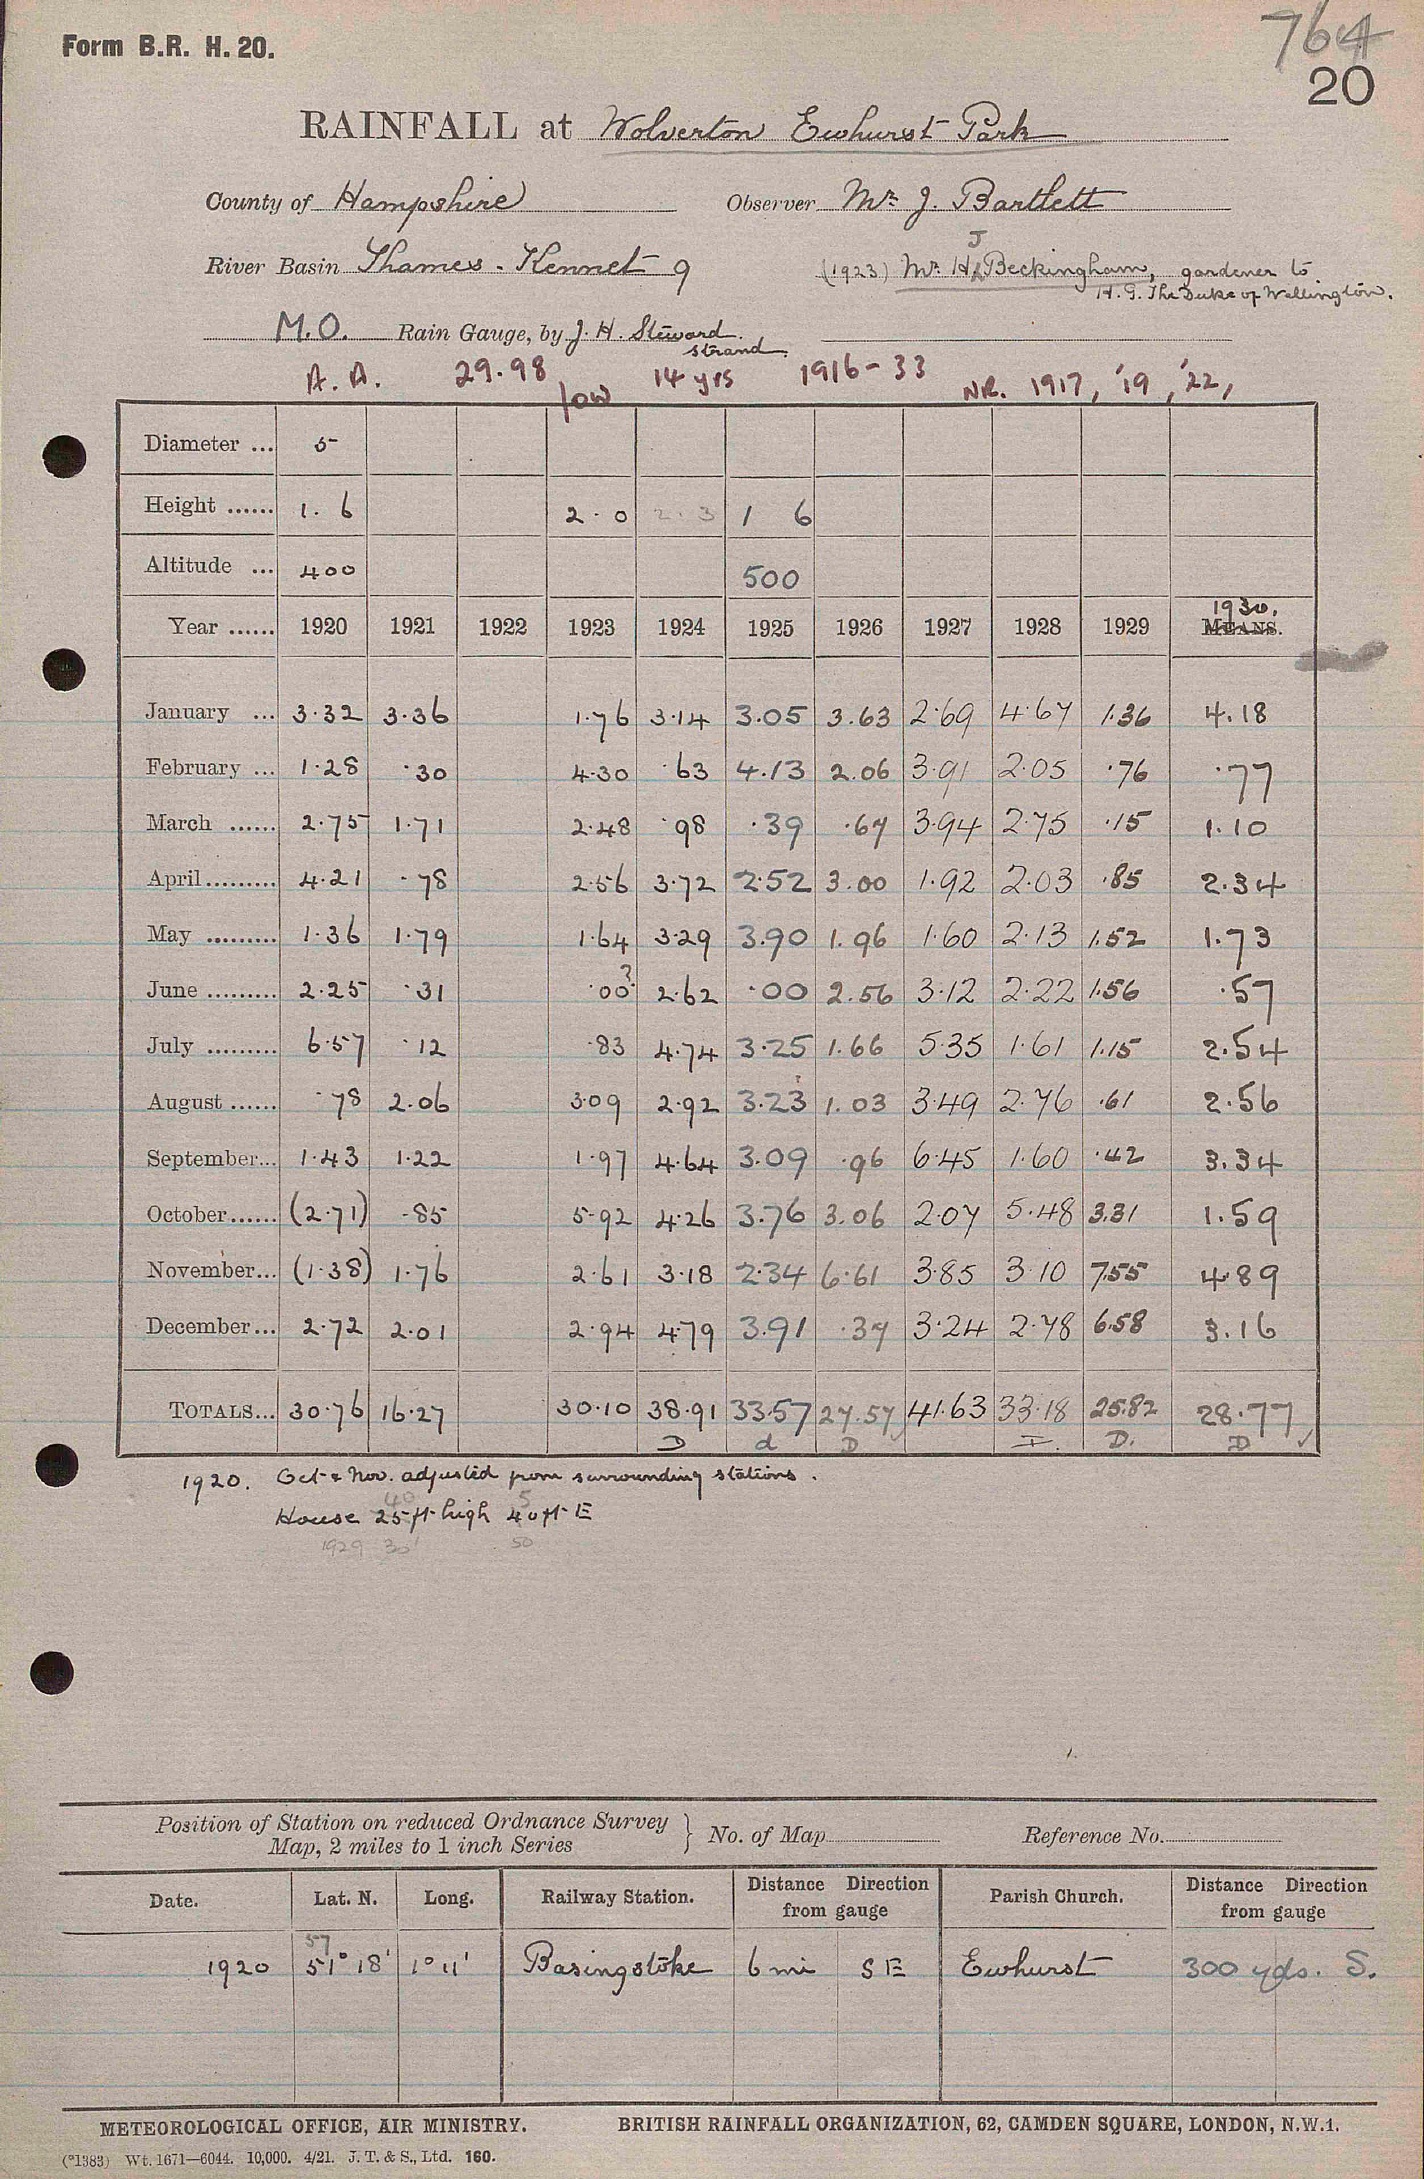 Form B.R. H. 20.
764
20
RAINFALL at Wolverton Ewhurst Park
County of Hampshire Observer Mr J. Bartlett
River Basin Thames - Kennet 9 (1923) Mr H J Beckingham, gardener to
H. G. The Duke of Wellington.
M.O. Rain Gauge, by J. H. Steward
Strand.
A. A. 29.98 low 14 yrs 1916-33 NR. 1917, '19, '22,
Diameter ... 5
Height ...... 1. 6 2 . 0 2 . 3 1 6
Altitude ... 400 500
Year ...... 1920 1921 1922 1923 1924 1925 1926 1927 1928 1929 1930. MEANS.
January ... 3.32 3.36 1.76 3.14 3.05 3.63 2.69 4.67 1.36 4.18
February ... 1.28 .30 4.30 .63 4.13 2.06 3.91 2.05 .76 .77
March ...... 2.75 1.71 2.48 .98 .39 .67 3.94 2.75 .15 1.10
April......... 4.21 .78 2.56 3.72 2.52 3.00 1.92 2.03 .85 2.34
May ......... 1.36 1.79 1.64 3.29 3.90 1.96 1.60 2.13 1.52 1.73
June ......... 2.25 .31 .00? 2.62 .00 2.56 3.12 2.22 1.56 .57
July ......... 6.57 .12 .83 4.74 3.25 1.66 5.35 1.61 1.15 2.54
August ...... .78 2.06 3.09 2.92 3.23 1.03 3.49 2.76 .61 2.56
September... 1.43 1.22 1.97 4.64 3.09 .96 6.45 1.60 .42 3.34
October...... (2.71) .85 5.92 4.26 3.76 3.06 2.07 5.48 3.31 1.59
November... (1.38) 1.76 2.61 3.18 2.34 6.61 3.85 3.10 7.55 4.89
December... 2.72 2.01 2.94 4.79 3.91 .37 3.24 2.78 6.58 3.16
TOTALS... 30.76 16.27 30.10 38.91 33.57 27.57 41.63 33.18 25.82 28.77
D d D I. D. D ✓
1920. Oct & Nov. adjusted from surrounding stations.
40 5
House 25 ft high 40 ft E
1929 30' 50
Position of Station on reduced Ordnance Survey
Map, 2 miles to 1 inch Series } No. of Map Reference No.
Date. Lat. N. Long. Railway Station. Distance Direction from gauge Parish Church. Distance Direction from gauge
57
1920 51° 18' 1° 11' Basingstoke 6 mi SE Ewhurst 300 yds. S.
METEOROLOGICAL OFFICE, AIR MINISTRY. BRITISH RAINFALL ORGANIZATION, 62, CAMDEN SQUARE, LONDON, N.W.1.
(*1383) Wt. 1671—6044. 10,000. 4/21. J. T. & S., Ltd. 160.